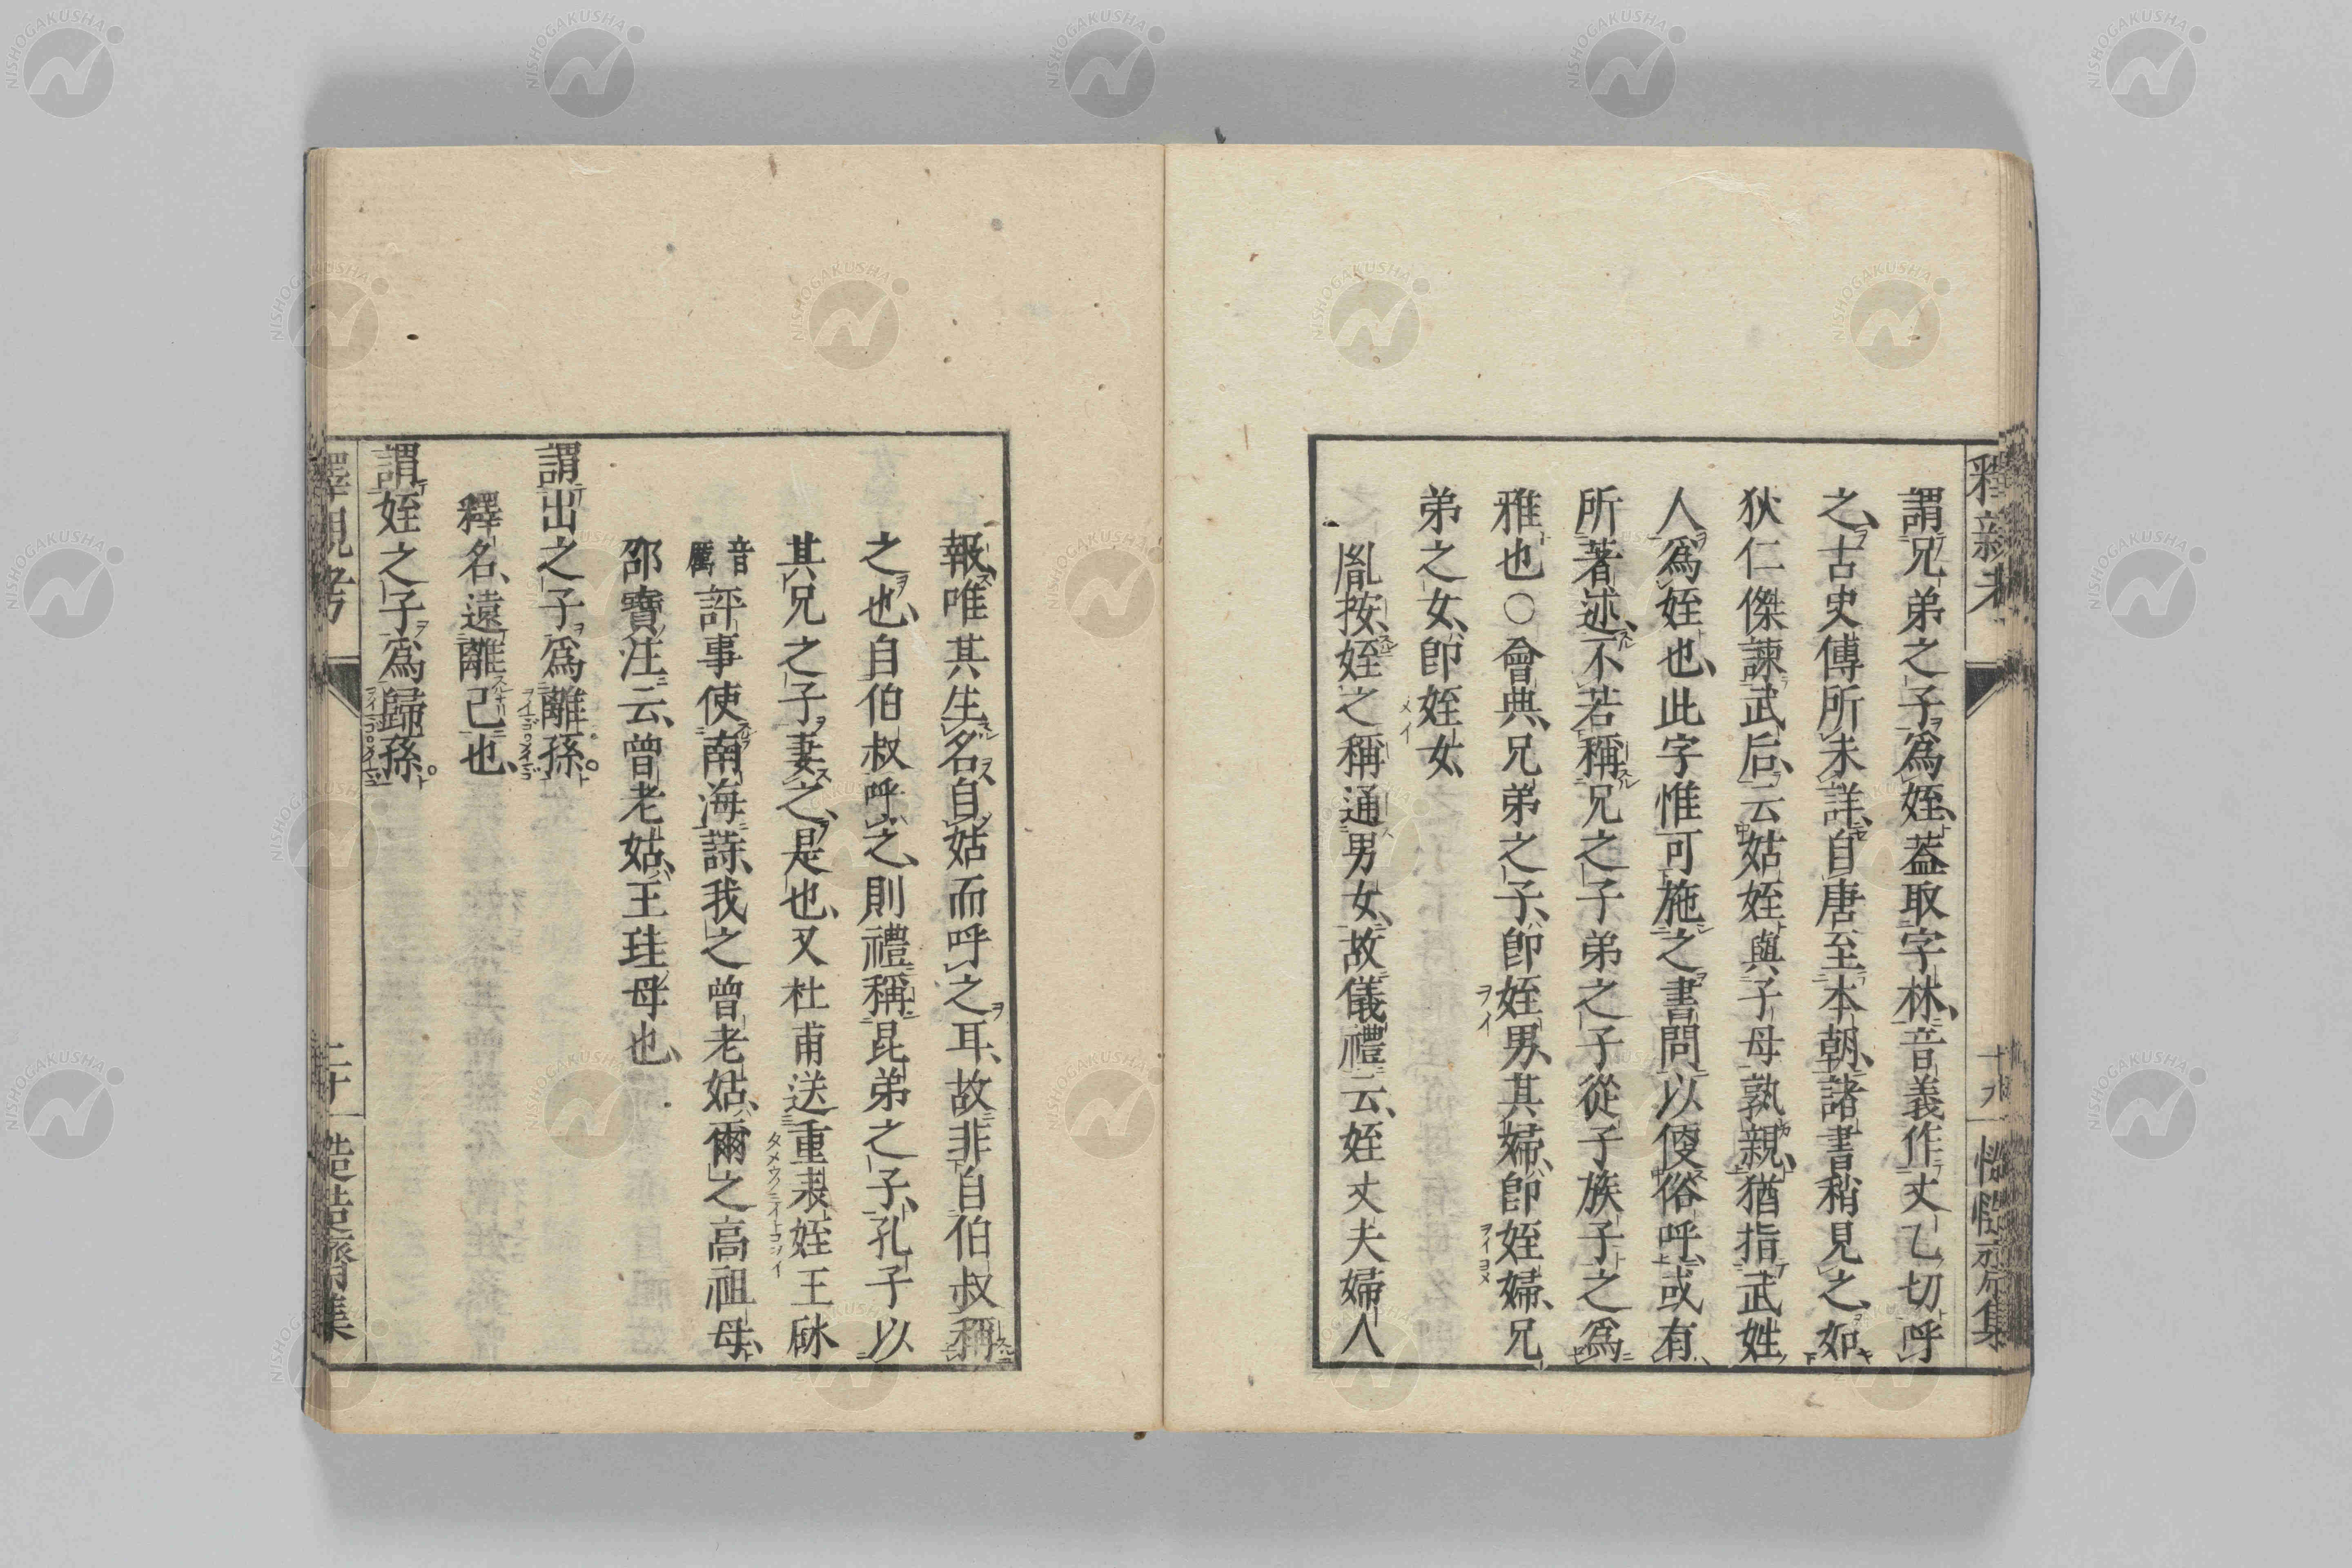 謂兄弟之子爲姪、蓋取字林、音義作丈乙切呼
之、古史傳所未詳、自唐至本朝、諸書稍見之、如
狄仁傑諫武后、云姑姪與子母孰親、猶指武姓
人爲姪也、此字惟可施之書問以便俗呼、或有
所著述、不若稱兄之子弟之子從子族子之爲
雅也○會典、兄弟之子、卽姪男、其婦、卽姪婦、兄
弟之女、卽姪女
胤按、姪之稱通男女、故儀禮云、姪丈夫婦人
報、唯其生名自姑而呼之耳、故非自伯叔稱
之也、自伯叔呼之、則禮稱昆弟之子、孔子以
其兄之子妻之、是也、又杜甫送重表姪王砅
音厲評事使南海詩、我之曾老姑、爾之高祖母、
邵寶注云、曾老姑、王珪母也、
謂出之子爲離孫。
釋名、遠離己也、
謂姪之子爲歸孫。
釋親考
二十
NISHOGAKUSHA